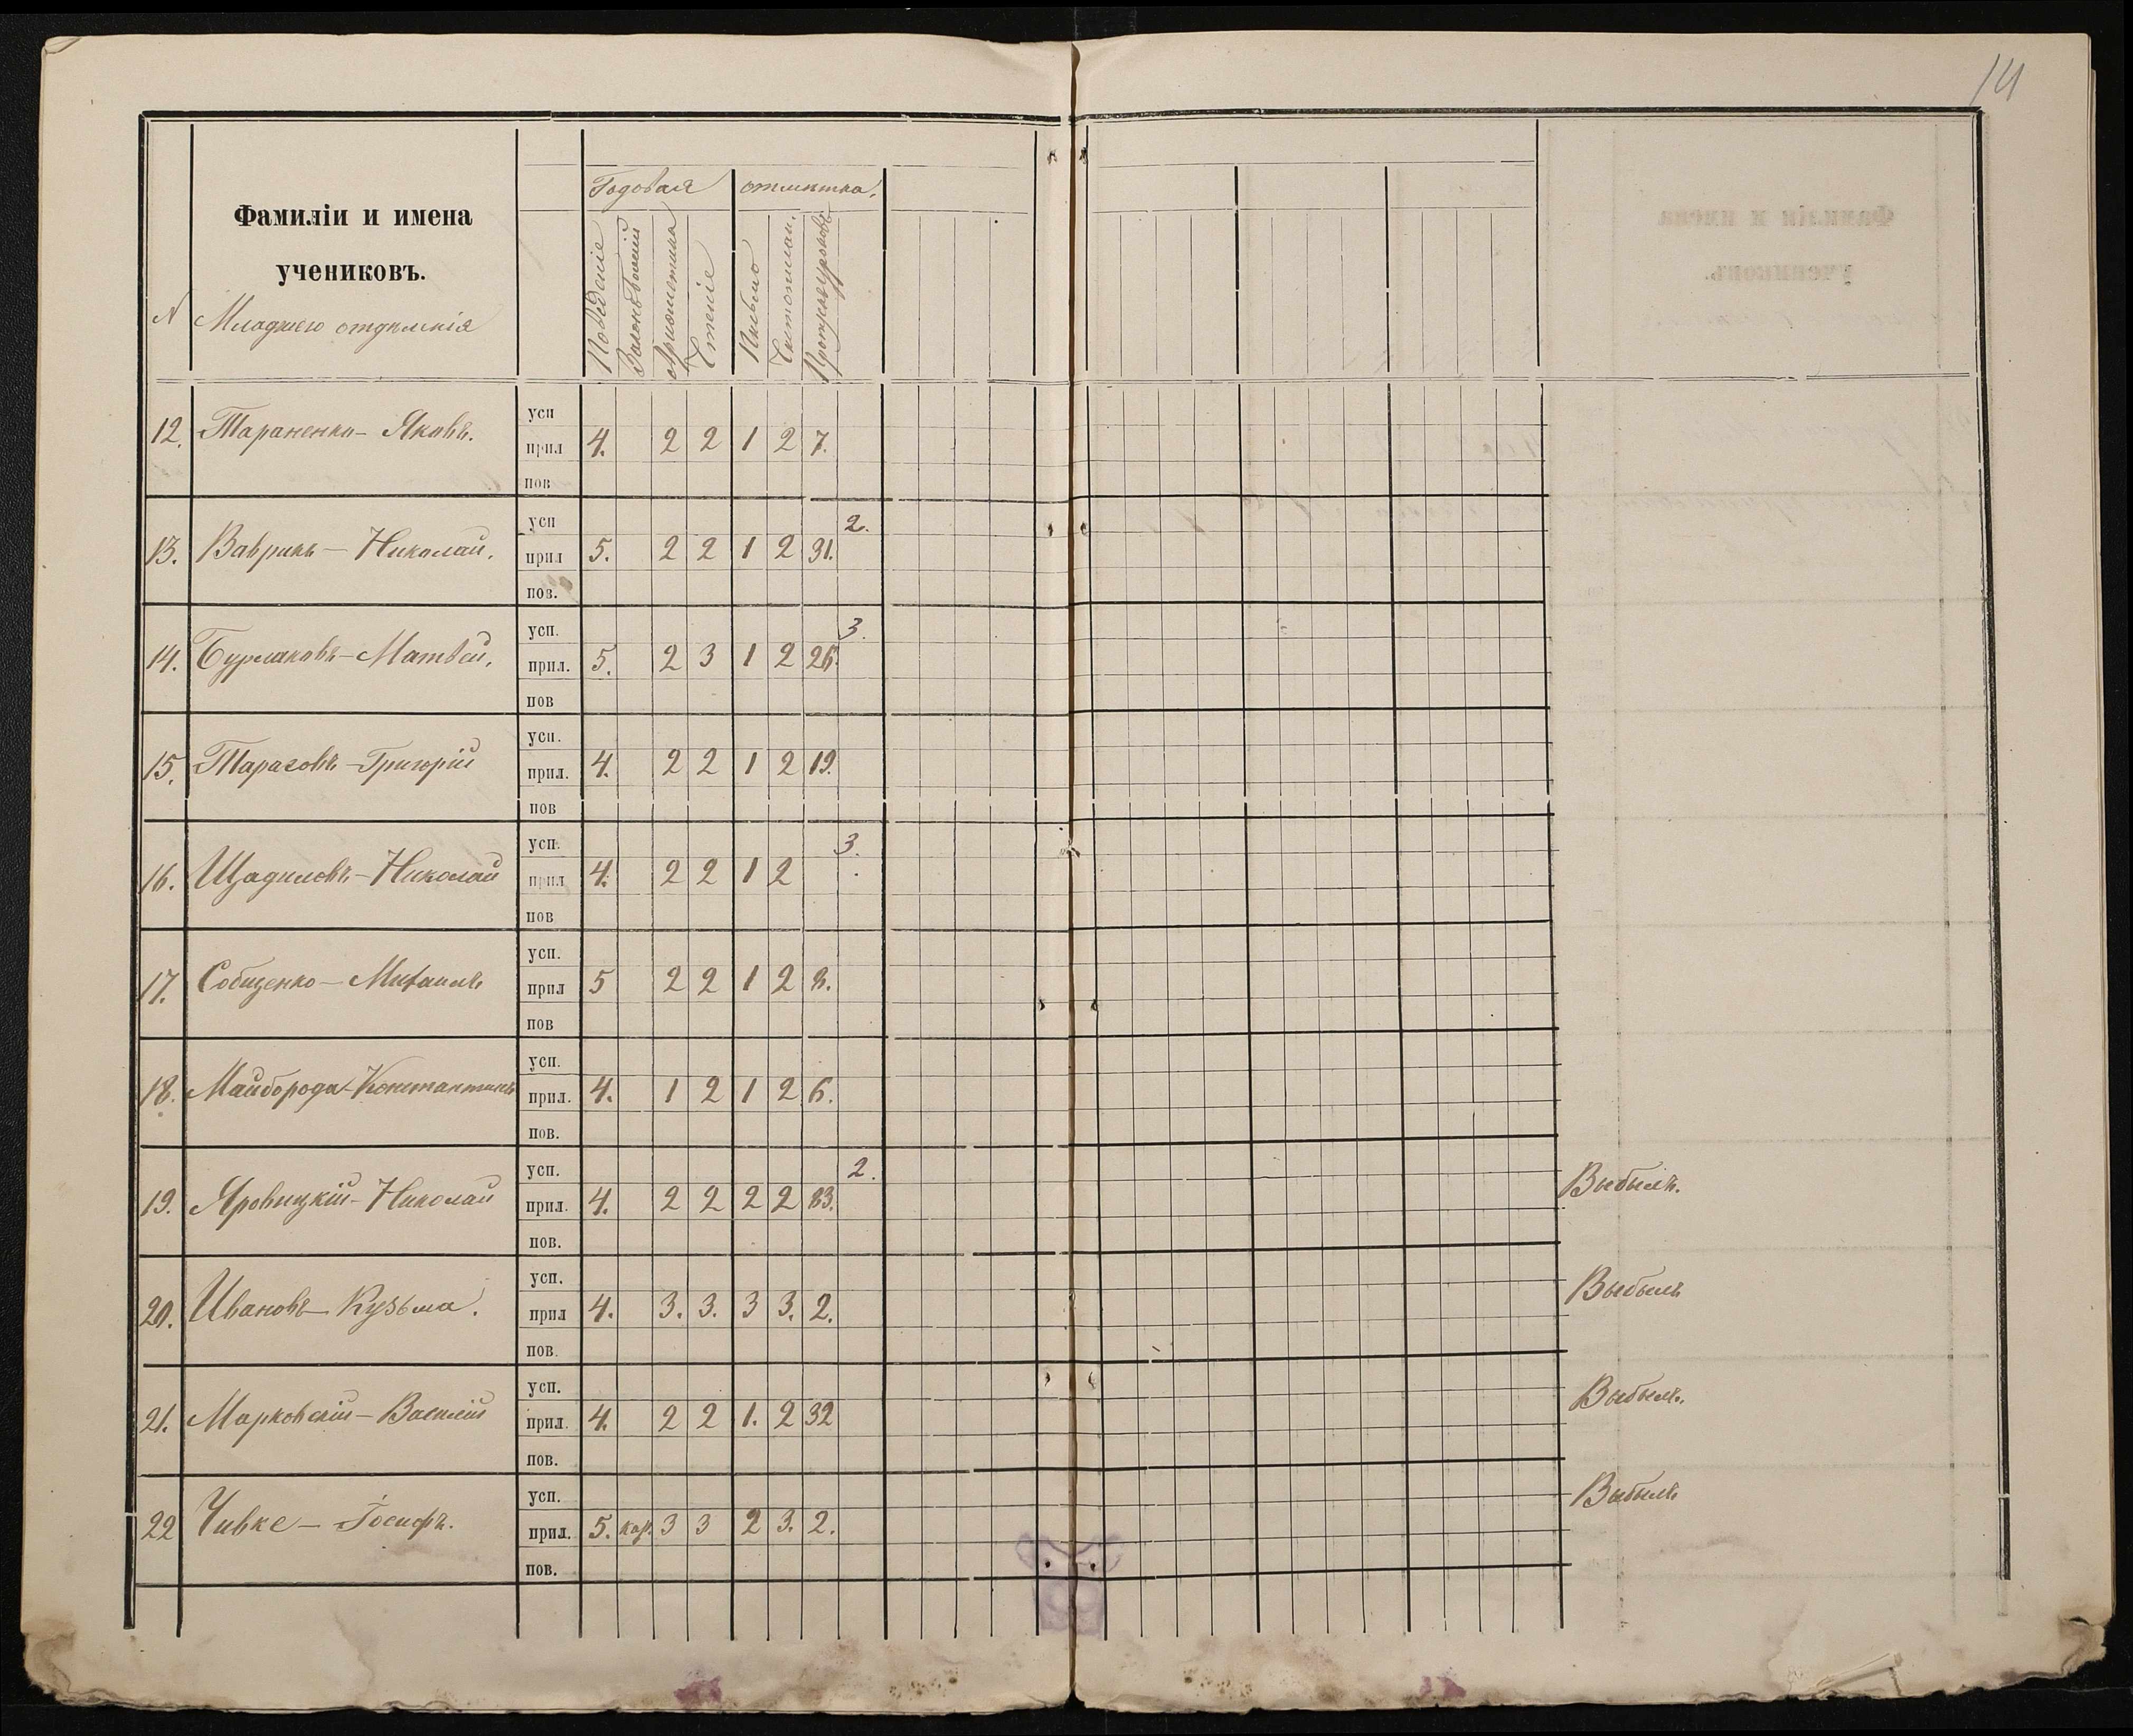 14
Фамиліи и имена
учениковъ.
N Младшего отдѣленія
Годовая отмѣтка.
Поведеніе
Законъ Божій
Ариѳметика
Чтеніе
Письмо
Чистописан.
12. Тараненко - Яковъ.
усп
прил 4. 2 2 1 2 7.
пов
13. Вавринъ - Николай.
усп 2.
прил 5. 2 2 1 2 31.
пов.
14. Бурлаковъ - Матвѣй.
усп. 3.
прил. 5. 2 3 1 2 26.
пов
15. Тарасовъ - Григорій
усп.
прил. 4. 2 2 1 2 19.
пов
16. Щадиловъ - Николай
усп. 3.
прил 4. 2 2 1 2
пов
17. Собщенко - Михаилъ
усп.
прил 5 2 2 1 2 8.
пов
18. Майборода - Константинъ
усп.
прил. 4. 1 2 1 2 6.
пов.
19. Яровицкій - Николай
усп. 2.
прил. 4. 2 2 2 2 83.
пов.
Выбылъ.
20. Ивановъ - Кузьма.
усп.
прил 4. 3. 3. 3 3. 2.
пов.
Выбылъ
21. Марковскій - Василій
усп.
прил. 4. 2 2 1. 2 32
пов.
Выбылъ.
22 Чивке - Іосифъ.
усп.
прил. 5. 3 3 2 3. 2.
пов.
Выбылъ